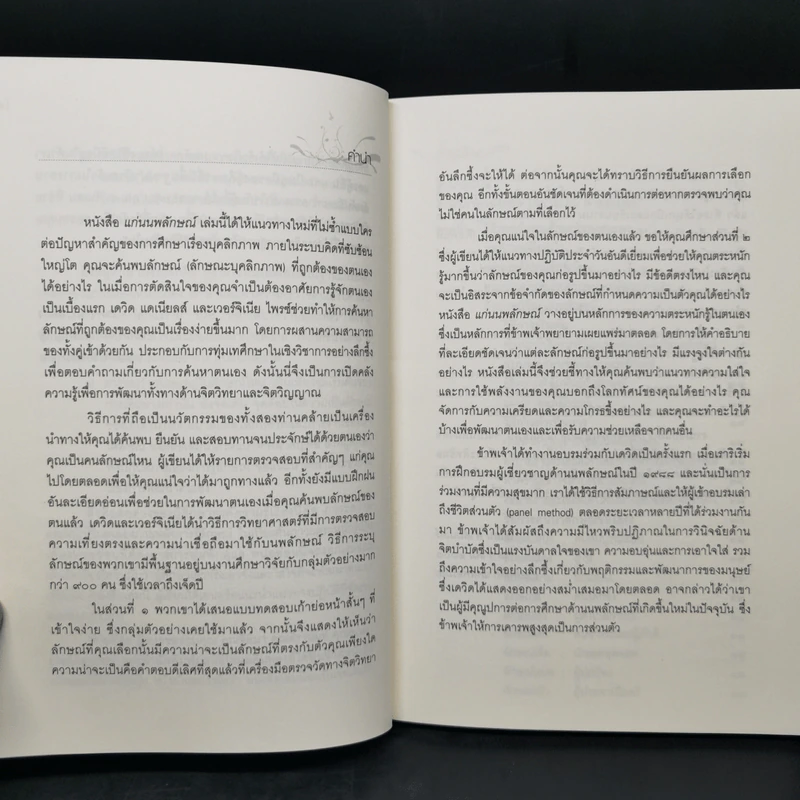 คำนำ
หนังสือ แก่นนพลักษณ์ เล่มนี้ได้ให้แนวทางใหม่ที่ไม่ซ้ำแบบใคร
ต่อปัญหาสำคัญของการศึกษาเรื่องบุคลิกภาพ ภายในระบบคิดที่ซับซ้อน
ใหญ่โต คุณจะค้นพบลักษณ์ (ลักษณะบุคลิกภาพ) ที่ถูกต้องของตนเอง
ได้อย่างไร ในเมื่อการตัดสินใจของคุณจำเป็นต้องอาศัยการรู้จักตนเอง
เป็นเบื้องแรก เดวิด แดเนียลส์ และเวอร์จิเนีย ไพรซ์ช่วยทำให้การค้นหา
ลักษณ์ที่ถูกต้องของคุณเป็นเรื่องง่ายขึ้นมาก โดยการผสานความสามารถ
ของทั้งคู่เข้าด้วยกัน ประกอบกับการทุ่มเทศึกษาในเชิงวิชาการอย่างลึกซึ้ง
เพื่อตอบคำถามเกี่ยวกับการค้นหาตนเอง ดังนั้นนี่จึงเป็นการเปิดคลัง
ความรู้เพื่อการพัฒนาทั้งทางด้านจิตวิทยาและจิตวิญญาณ
วิธีการที่ถือเป็นนวัตกรรมของทั้งสองท่านคล้ายเป็นเครื่อง
นำทางให้คุณได้ค้นพบ ยืนยัน และสอบทานจนประจักษ์ได้ด้วยตนเองว่า
คุณเป็นคนลักษณ์ไหน ผู้เขียนได้ให้รายการตรวจสอบที่สำคัญๆ แก่คุณ
ไปโดยตลอดเพื่อให้คุณแน่ใจว่าได้มาถูกทางแล้ว อีกทั้งยังมีแบบฝึกฝน
อันละเอียดอ่อนเพื่อช่วยในการพัฒนาตนเองเมื่อคุณค้นพบลักษณ์ของ
ตนแล้ว เดวิดและเวอร์จิเนียได้นำวิธีการวิทยาศาสตร์ที่มีการตรวจสอบ
ความเที่ยงตรงและความน่าเชื่อถือมาใช้กับนพลักษณ์ วิธีการระบุ
ลักษณ์ของพวกเขามีพื้นฐานอยู่บนงานศึกษาวิจัยกับกลุ่มตัวอย่างมาก
กว่า ๙๐๐ คน ซึ่งใช้เวลาถึงเจ็ดปี
ในส่วนที่ ๑ พวกเขาได้เสนอแบบทดสอบเก้าย่อหน้าสั้นๆ ที่
เข้าใจง่าย ซึ่งกลุ่มตัวอย่างเคยใช้มาแล้ว จากนั้นจึงแสดงให้เห็นว่า
ลักษณ์ที่คุณเลือกนั้นมีความน่าจะเป็นลักษณ์ที่ตรงกับตัวคุณเพียงใด
ความน่าจะเป็นคือคำตอบดีเลิศที่สุดแล้วที่เครื่องมือตรวจวัดทางจิตวิทยา
อันลึกซึ้งจะให้ได้ ต่อจากนั้นคุณจะได้ทราบวิธีการยืนยันผลการเลือก
ของคุณ อีกทั้งขั้นตอนอันชัดเจนที่ต้องดำเนินการต่อหากตรวจพบว่าคุณ
ไม่ใช่คนในลักษณ์ตามที่เลือกไว้
เมื่อคุณแน่ใจในลักษณ์ของตนเองแล้ว ขอให้คุณศึกษาส่วนที่ ๒
ซึ่งผู้เขียนได้ให้แนวทางปฏิบัติประจำวันอันดีเยี่ยมเพื่อช่วยให้คุณตระหนัก
รู้มากขึ้นว่าลักษณ์ของคุณก่อรูปขึ้นมาอย่างไร มีข้อดีตรงไหน และคุณ
จะเป็นอิสระจากข้อจำกัดของลักษณ์ที่กำหนดความเป็นตัวคุณได้อย่างไร
หนังสือ แก่นนพลักษณ์ วางอยู่บนหลักการของความตระหนักรู้ในตนเอง
ซึ่งเป็นหลักการที่ข้าพเจ้าพยายามเผยแพร่มาตลอด โดยการให้คำอธิบาย
ที่ละเอียดชัดเจนว่าแต่ละลักษณ์ก่อรูปขึ้นมาอย่างไร มีแรงจูงใจต่างกัน
อย่างไร หนังสือเล่มนี้จึงช่วยชี้ทางให้คุณค้นพบว่าแนวทางความใส่ใจ
และการใช้พลังงานของคุณบอกถึงโลกทัศน์ของคุณได้อย่างไร คุณ
จัดการกับความเครียดและความโกรธขึ้งอย่างไร และคุณจะทำอะไรได้
บ้างเพื่อพัฒนาตนเองและเพื่อรับความช่วยเหลือจากคนอื่น
ข้าพเจ้าได้ทำงานอบรมร่วมกับเดวิดเป็นครั้งแรก เมื่อเราริเริ่ม
การฝึกอบรมผู้เชี่ยวชาญด้านนพลักษณ์ในปี ๑๙๘๘ และนั่นเป็นการ
ร่วมงานที่มีความสุขมาก เราได้ใช้วิธีการสัมภาษณ์และให้ผู้เข้าอบรมเล่า
ถึงชีวิตส่วนตัว (panel method) ตลอดระยะเวลาหลายปีที่ได้ร่วมงานกัน
มา ข้าพเจ้าได้สัมผัสถึงความมีไหวพริบปฏิภาณในการวินิจฉัยด้าน
จิตบำบัดซึ่งเป็นแรงบันดาลใจของเขา ความอบอุ่นและการเอาใจใส่ รวม
ถึงความเข้าใจอย่างลึกซึ้งเกี่ยวกับพฤติกรรมและพัฒนาการของมนุษย์
ซึ่งเดวิดได้แสดงออกอย่างสม่ำเสมอมาโดยตลอด อาจกล่าวได้ว่าเขา
เป็นผู้มีคุณูปการต่อการศึกษาด้านนพลักษณ์ที่เกิดขึ้นใหม่ในปัจจุบัน ซึ่ง
ข้าพเจ้าให้การเคารพสูงสุดเป็นการส่วนตัว